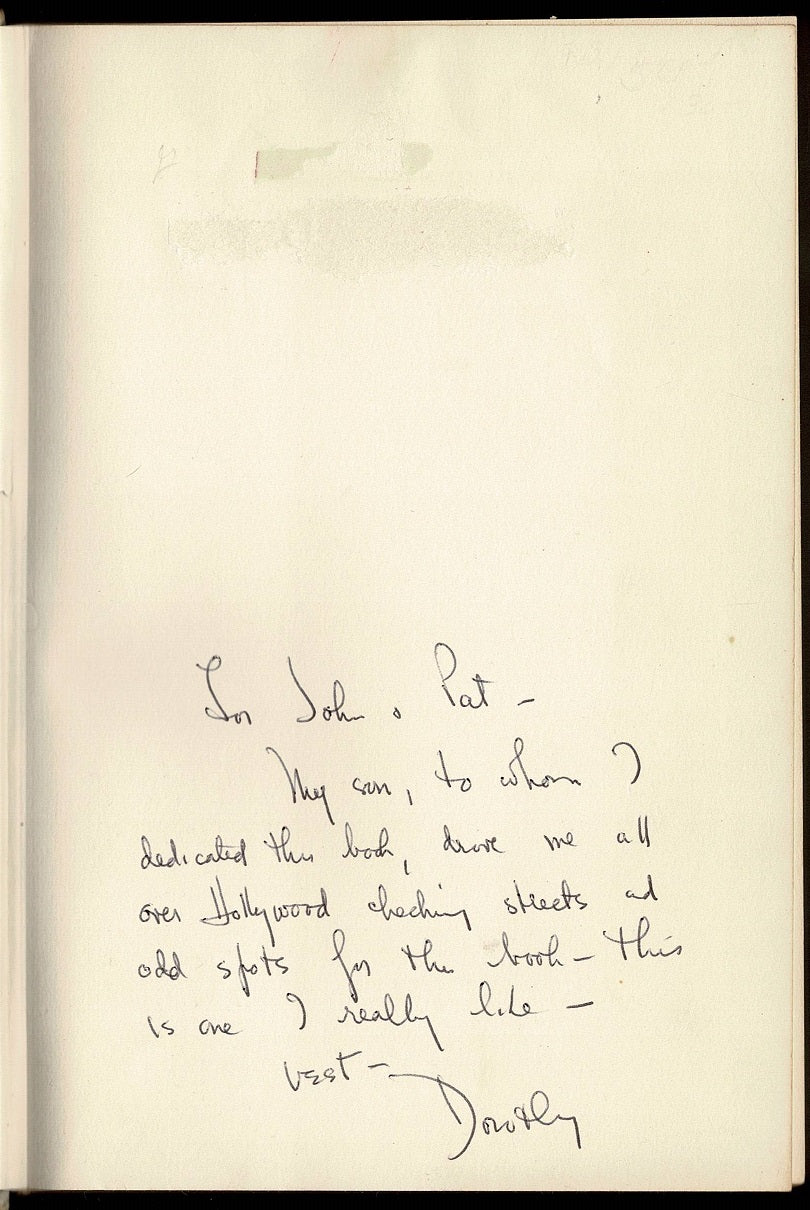 For John & Pat –
My son, to whom I
dedicated this book, drove me all
over Hollywood checking streets and
odd spots for the book – this
is one I really like –
Best –
Dorothy